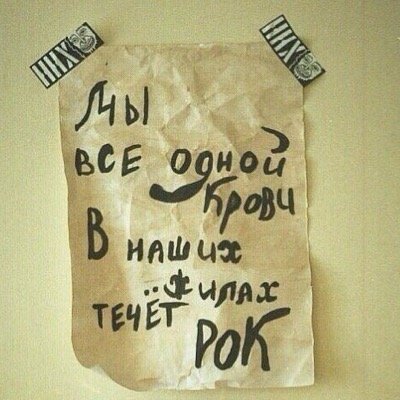 Мы
все одной
крови
В наших
жилах
течёт
РОК